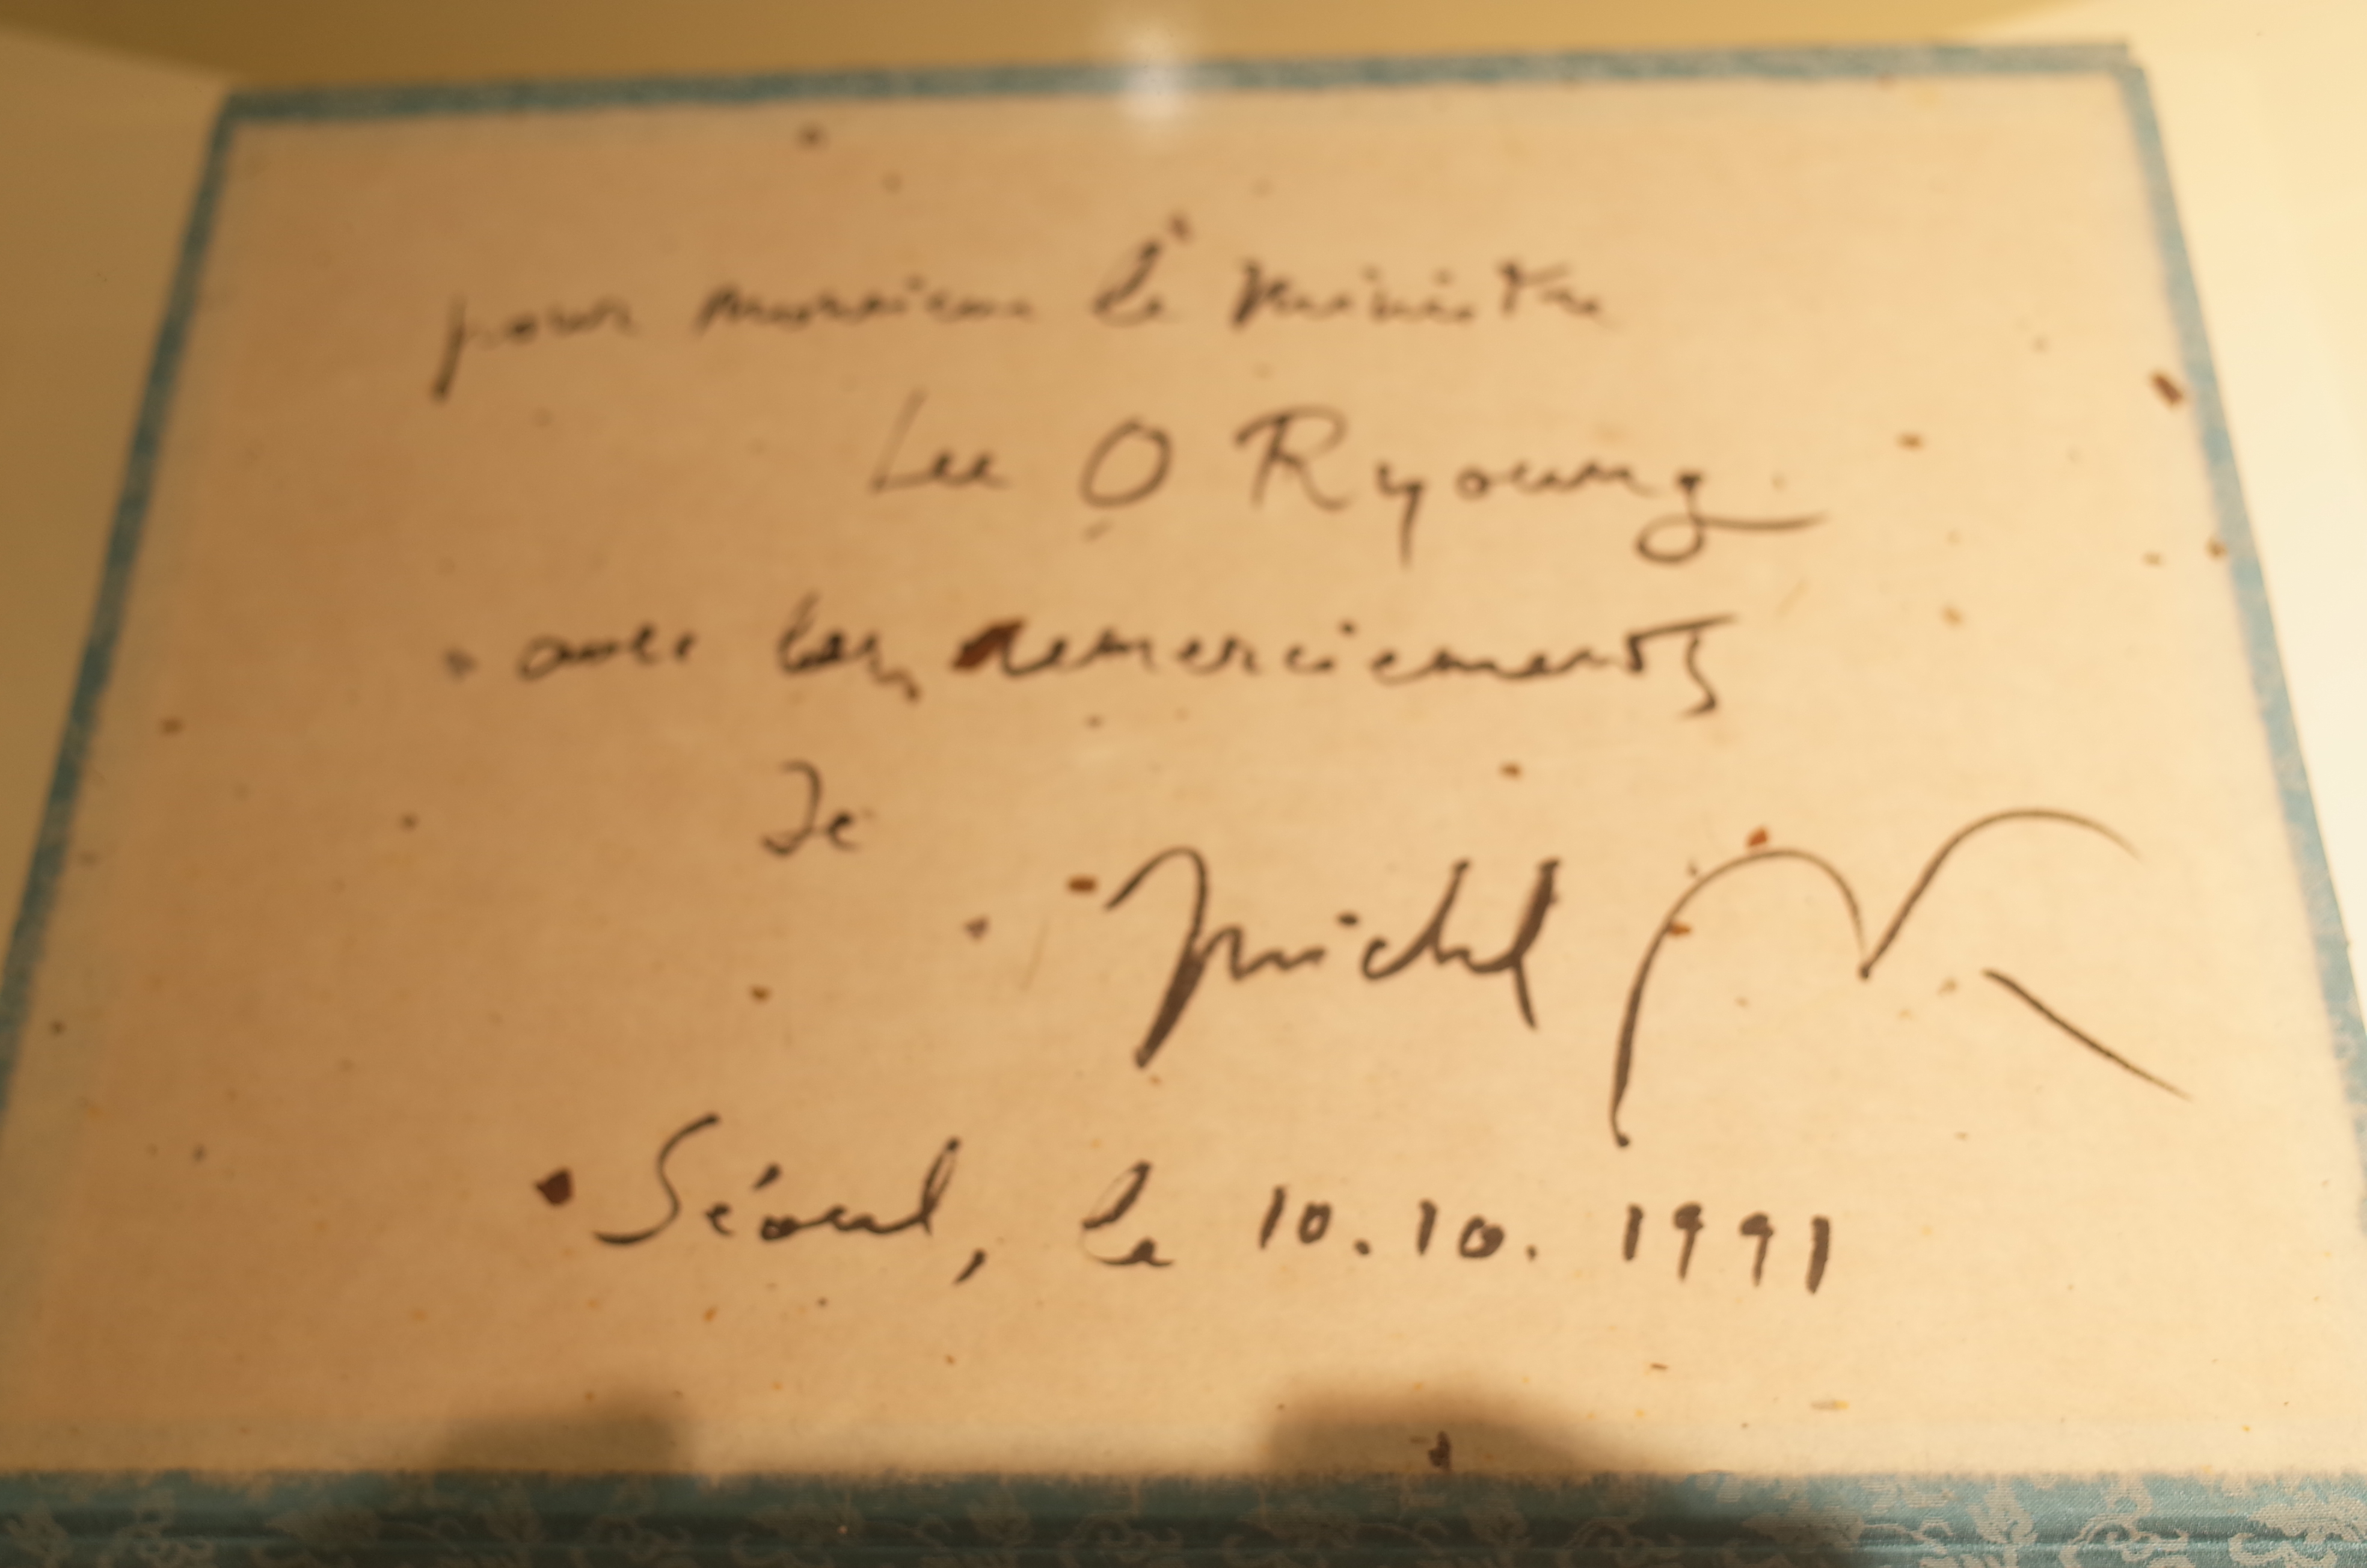 pour monsieur le ministre
Lee O Ryoung
avec les remerciements
de
Michel
Séoul, le 10.10.1991